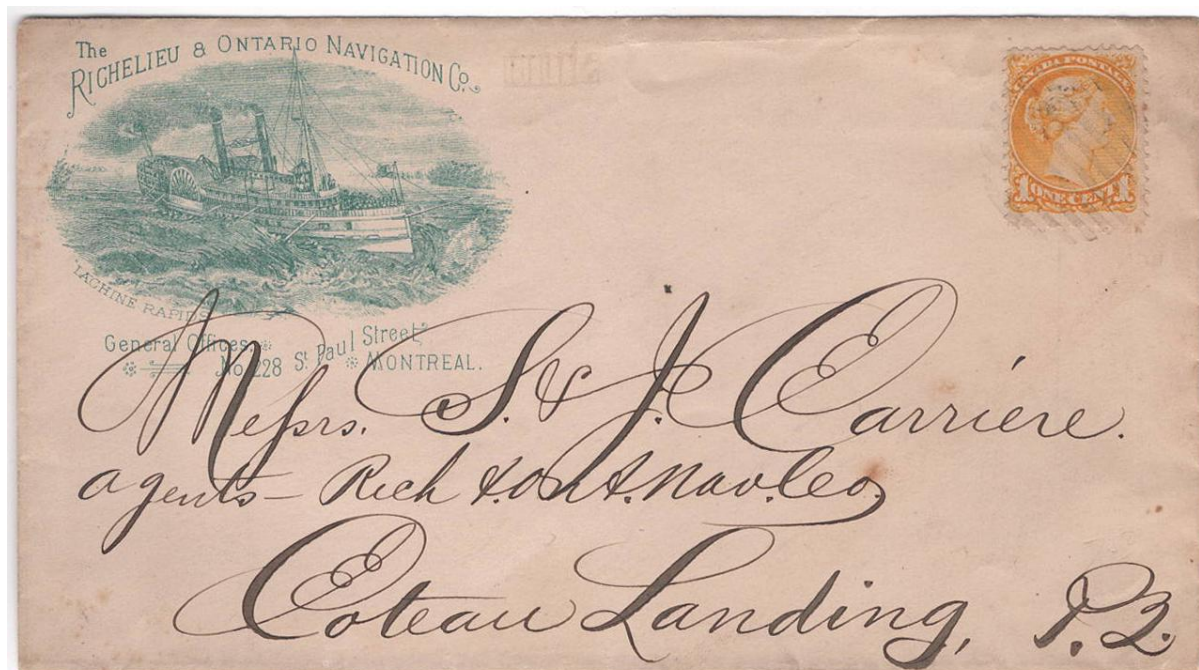 The
RICHELIEU & ONTARIO NAVIGATION Co.
LACHINE RAPIDS
General Offices.
No. 228 St. Paul Street
MONTREAL.
CANADA POSTAGE
1 ONE CENT 1
Messrs. S. & J. Carrière.
agents – Rich & Ont. Nav. Co.
Coteau Landing, P.Q.